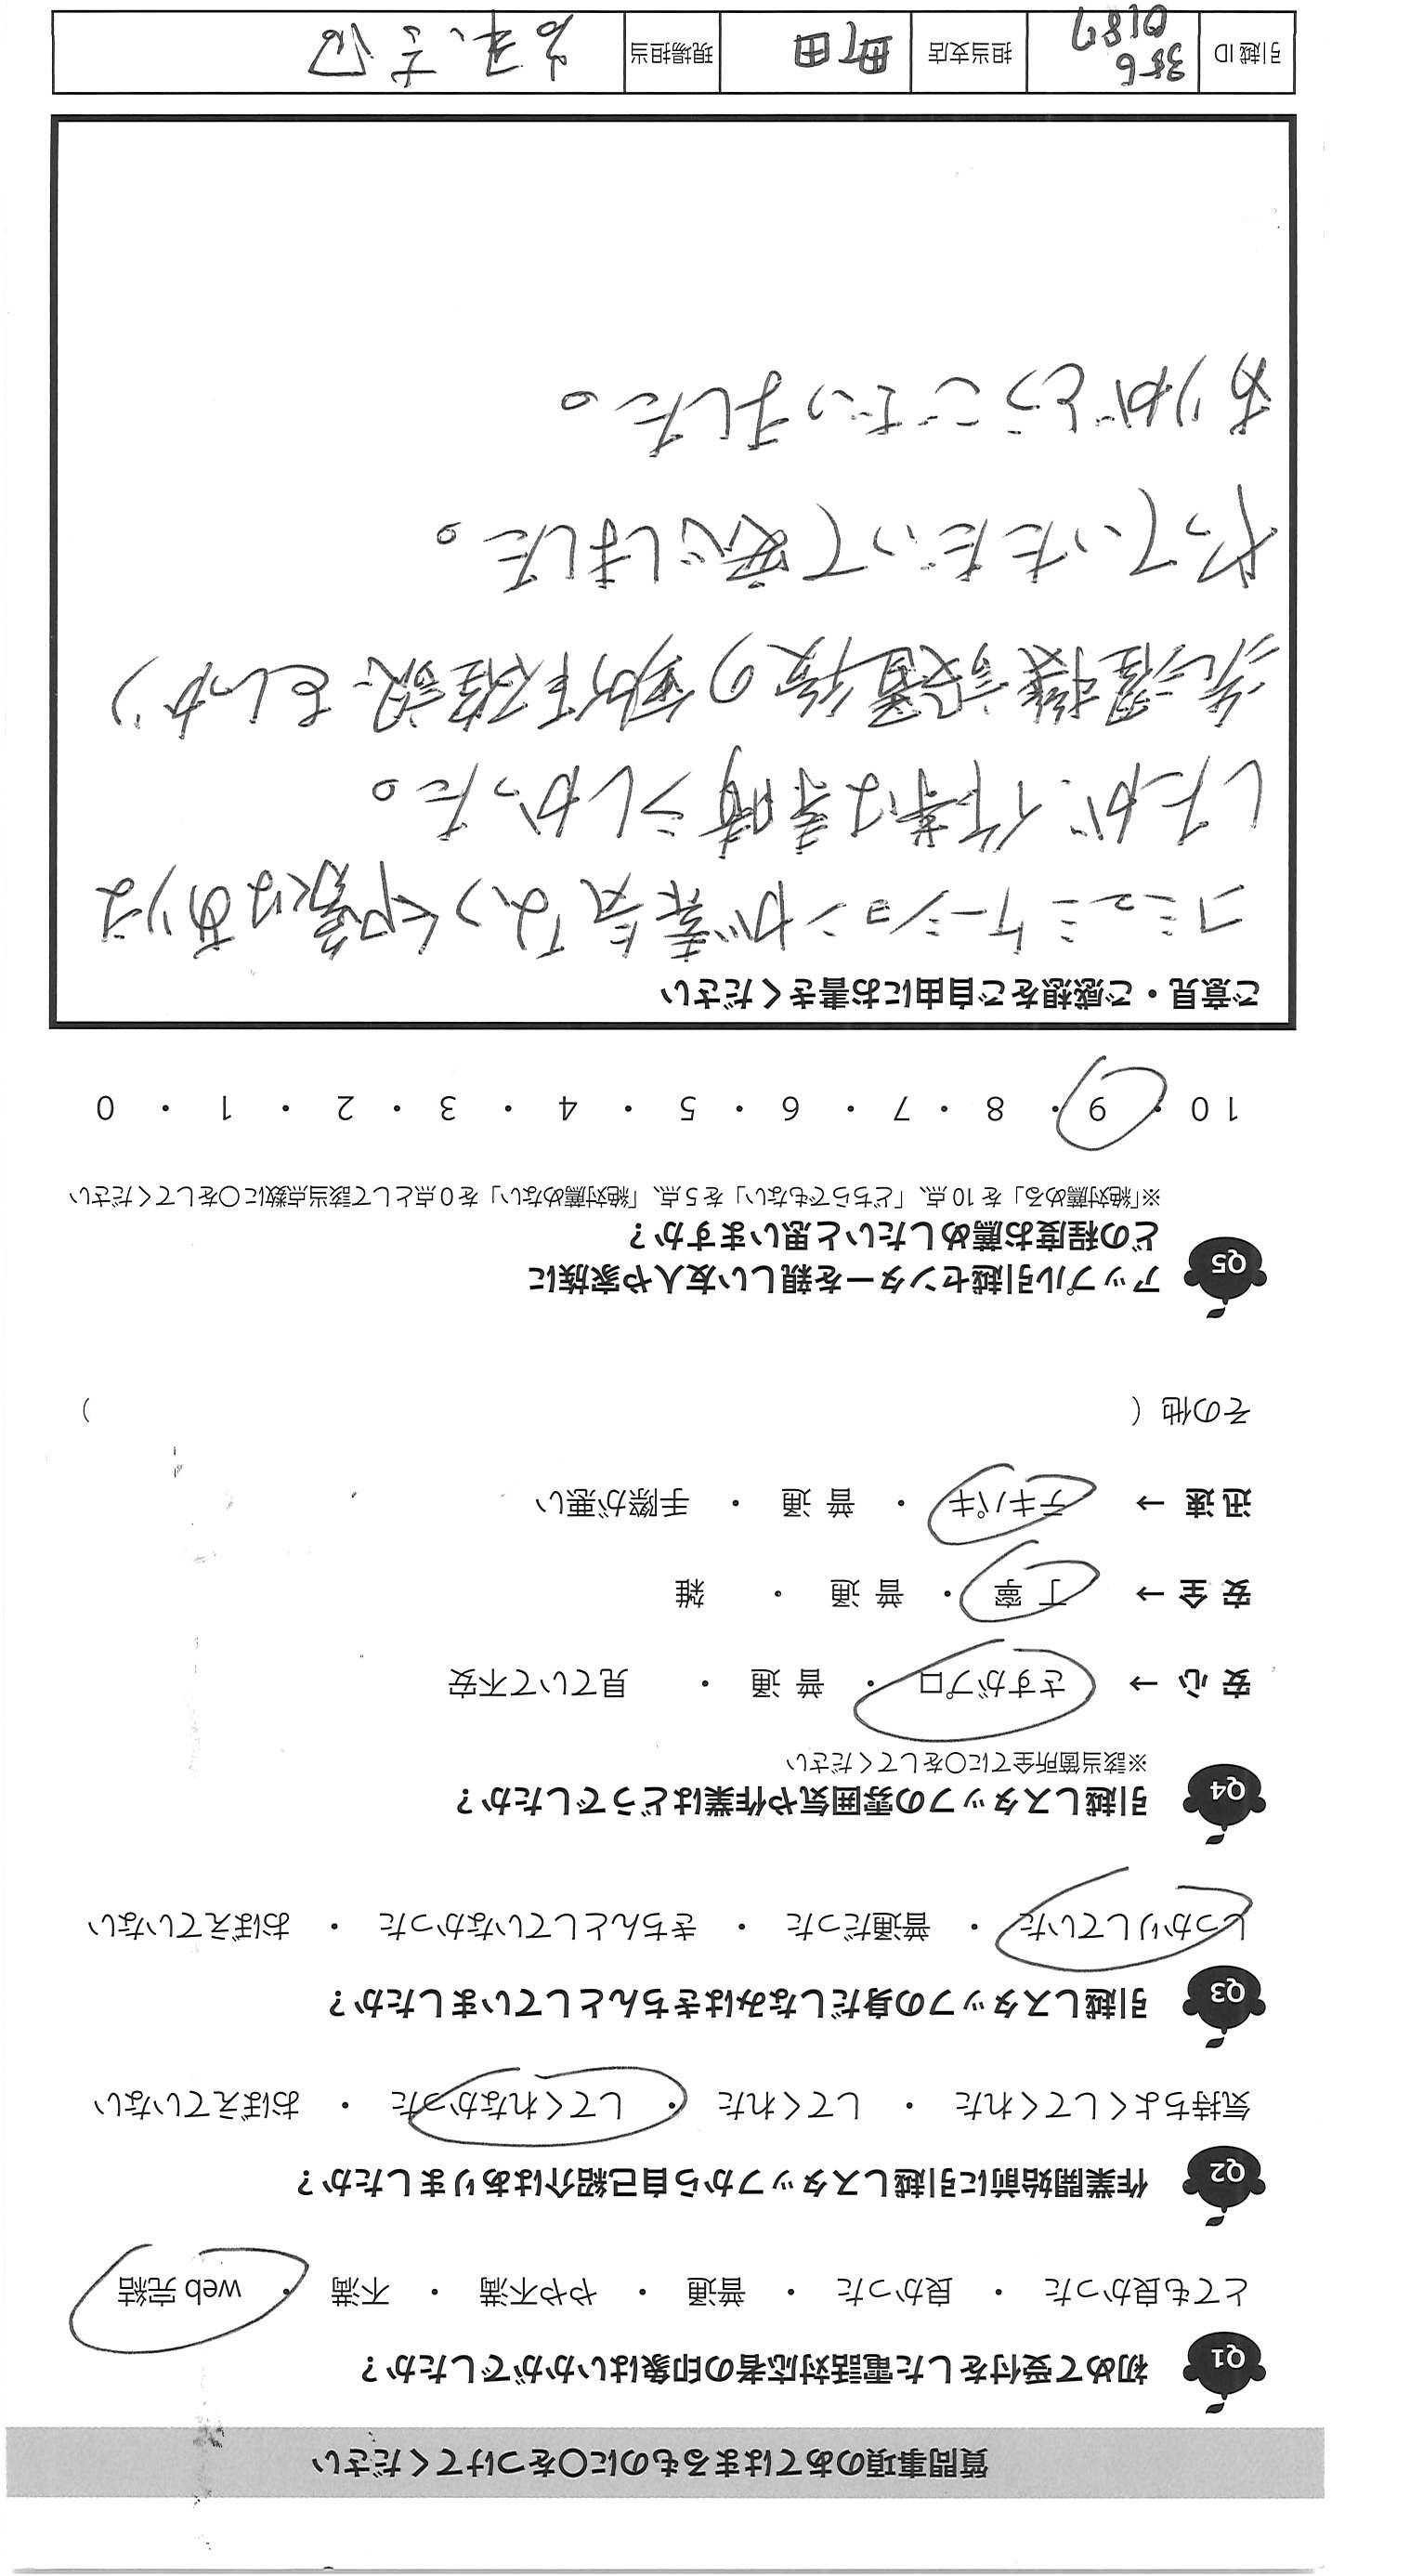 質問事項のあてはまるものに〇をつけてください
Q1 初めて受付をした電話対応者の印象はいかがでしたか？
とても良かった ・ 良かった ・ 普通 ・ やや不満 ・ 不満 ・ web 完結
Q2 作業開始前に引越しスタッフから自己紹介はありましたか？
気持ちよくしてくれた ・ してくれた ・ してくれなかった ・ おぼえていない
Q3 引越しスタッフの身だしなみはきちんとしていましたか？
しっかりしていた ・ 普通だった ・ きちんとしていなかった ・ おぼえていない
Q4 引越しスタッフの雰囲気や作業はどうでしたか？
※該当箇所全てに〇をしてください
安 心 → さすがプロ ・ 普 通 ・ 見ていて不安
安 全 → 丁 寧 ・ 普 通 ・ 雑
迅 速 → テキパキ ・ 普 通 ・ 手際が悪い
その他（ ）
Q5 アップル引越センターを親しい友人や家族に
どの程度お薦めしたいと思いますか？
※「絶対薦める」を 10 点、「どちらでもない」を 5 点、「絶対薦めない」を 0 点として該当点数に〇をしてください
10 ・ 9 ・ 8 ・ 7 ・ 6 ・ 5 ・ 4 ・ 3 ・ 2 ・ 1 ・ 0
ご意見・ご感想をご自由にお書きください
コミュニケーションが素気ない印象はありま
したが、作業は素晴らしかった。
洗濯機設置後の動作確認をしっかり
やっていただいて安心しました。
ありがとうございました。
引越 ID 356 0187 担当支店 町田 現場担当